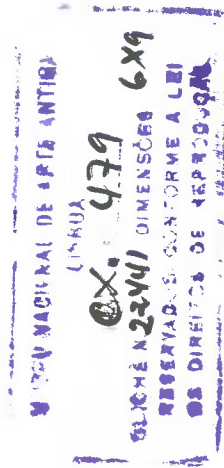 MUSEU NACIONAL DE ARTE ANTIGA
LISBOA
CX. 479
CLICHÉ N 22441 DIMENSÕES 6X9
RESERVADOS CONFORME A LEI
OS DIREITOS DE REPRODUÇÃO